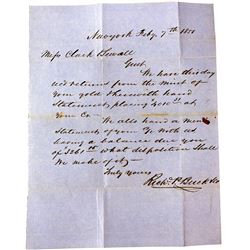 Newyork Feby. 7th 1851
Messrs Clark & Sewall
Gent.
We have this day
recd returns from the Mint of
Your gold Herewith hand
Statement, placing
Your Cr. We also hand a
Statement of your % With us
leaving a balance due you
of what disposition Shall
We make of it
Truly Yours